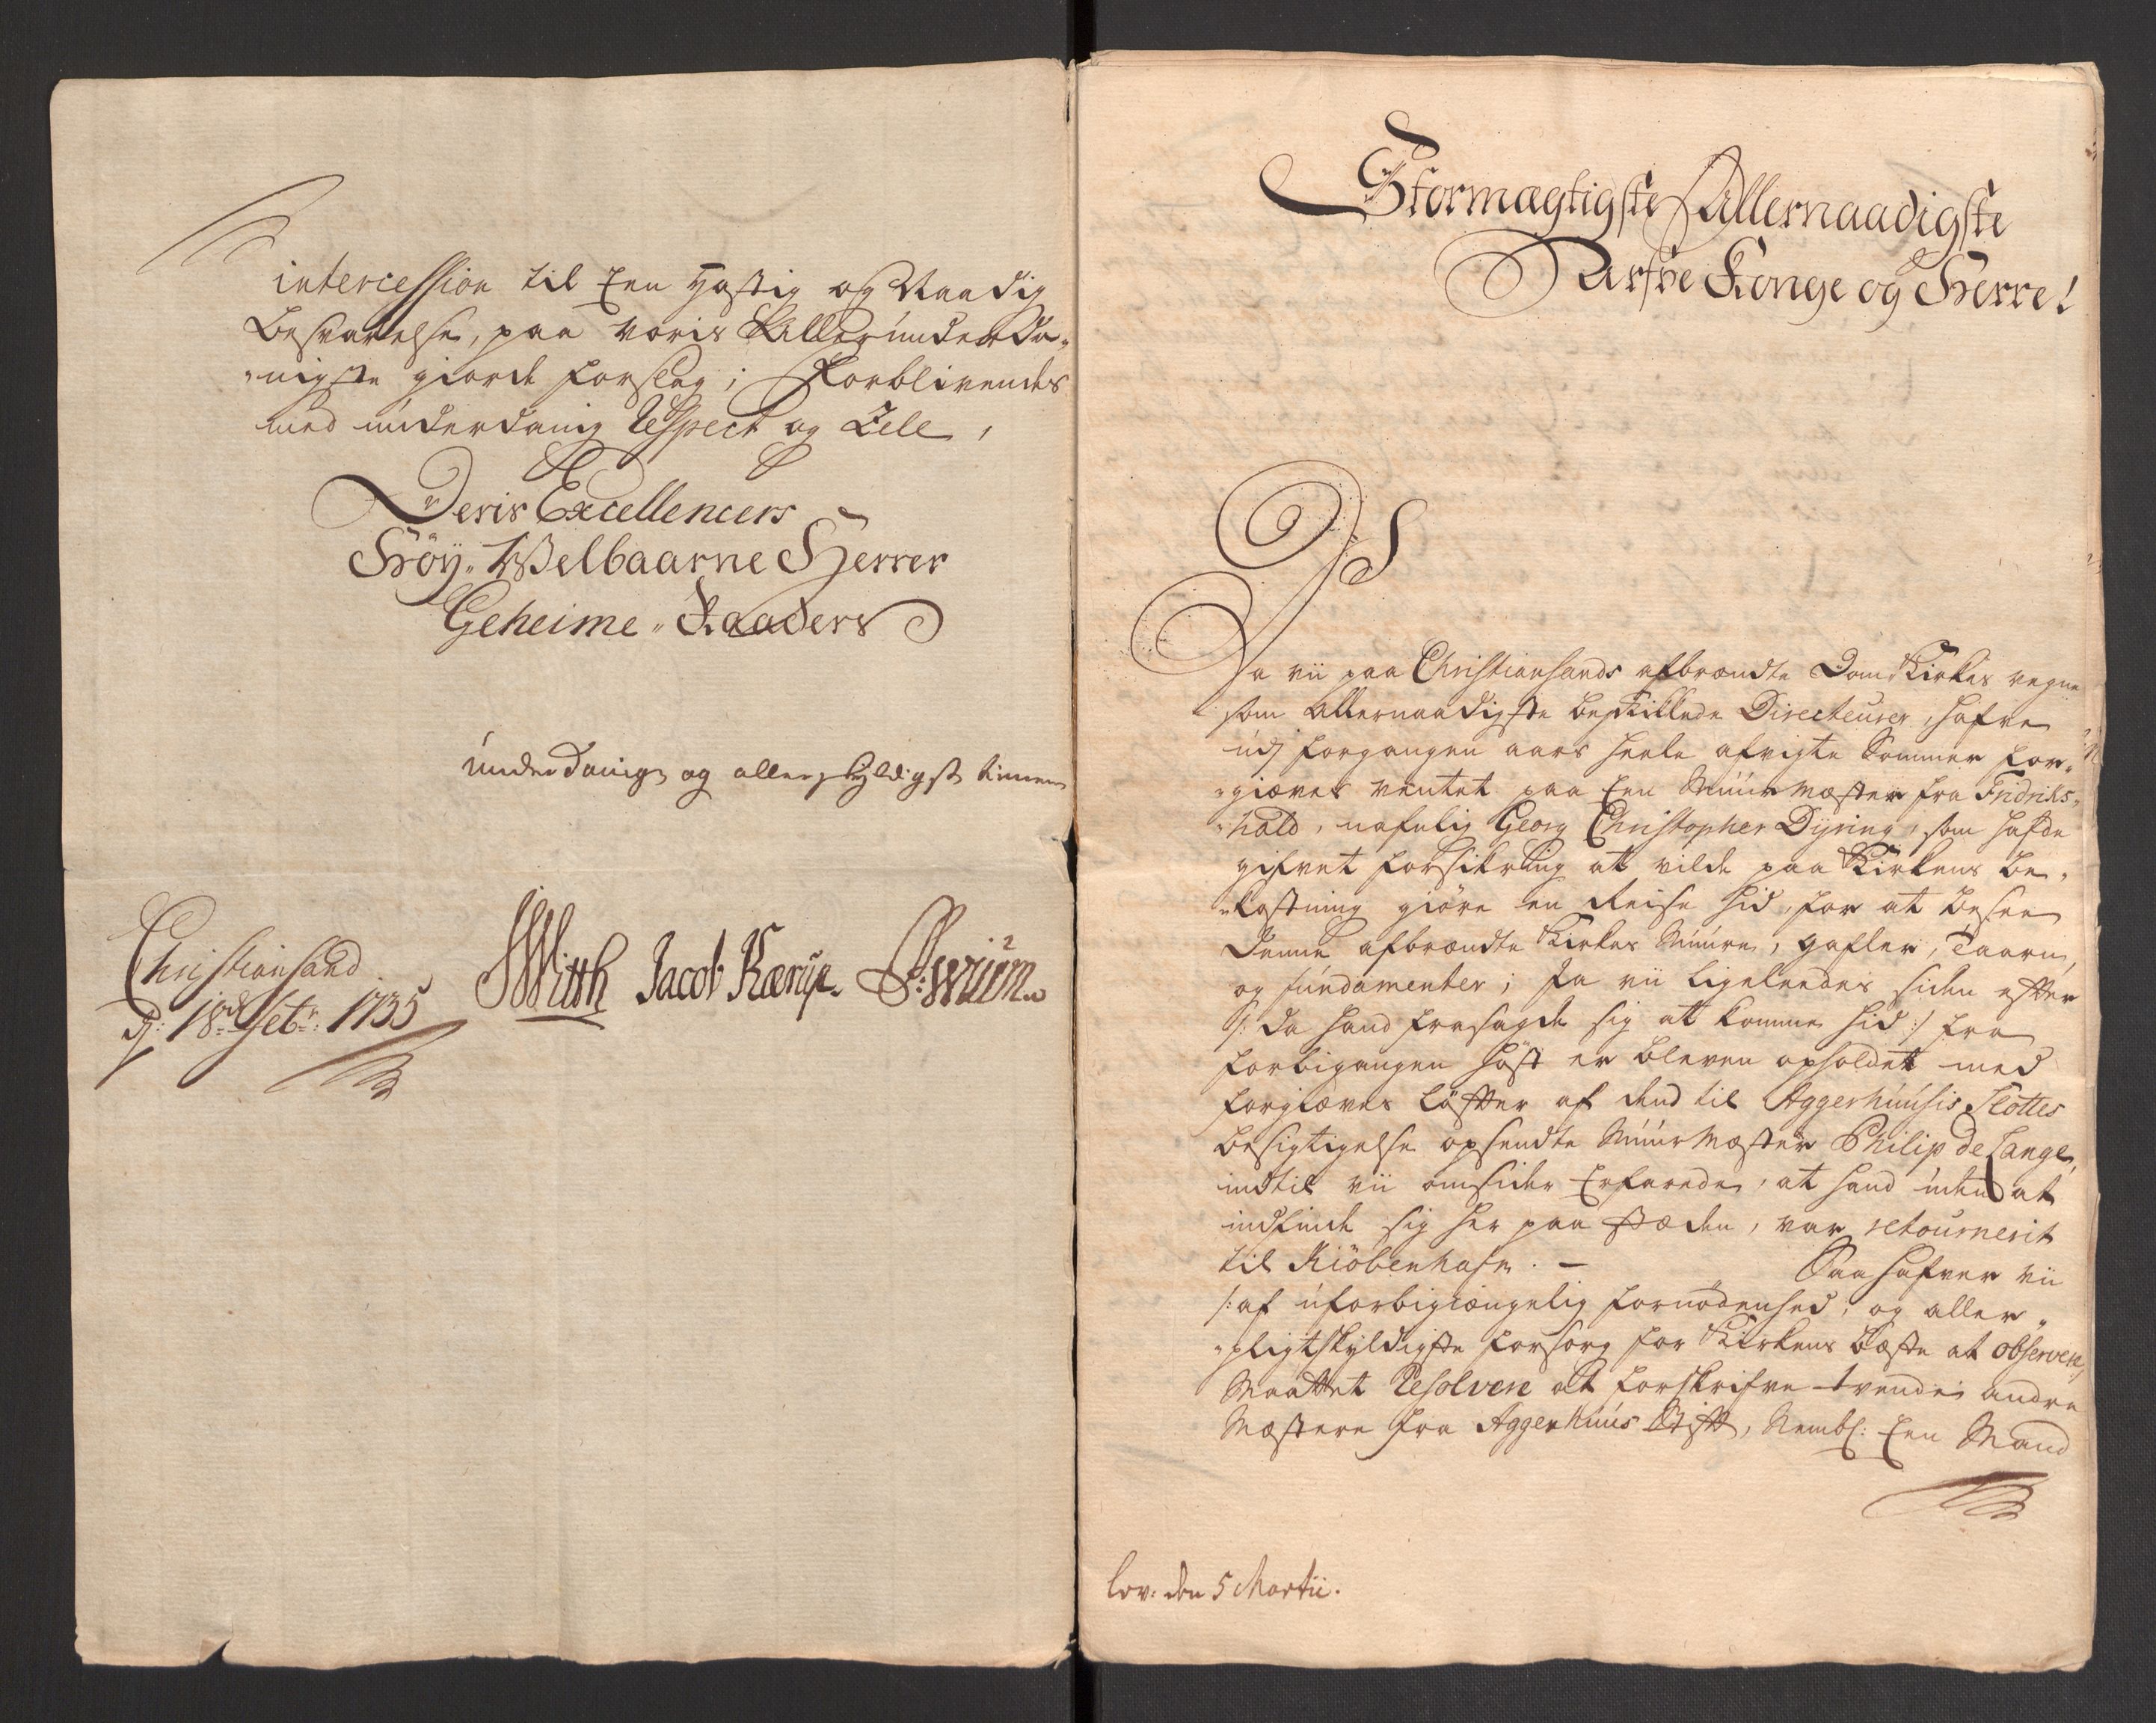 intercession til Een Hastig og Naadig
besvarelse, paa voris Allerunderda-
-nigste giorde forslag; Forblivendes
med underdanig Respect og Zele,
Deris Excellencers
Höy-Welbaarne Herrer
Geheime-Raaders
underdanigs og allerskyldigst tienere
Christiansand
d: 18de Febr: 1735
JWitth Jacob Kærup.
Stormægtigste Allernaadigste
Arfve Konge og Herre!
Da vii paa Christiansands afbrændte Dom Kirkes vegne
som allernaadigste beskillede Directeurer, hafve
udj forgangen aars heele afvigte Sommer for-
-giæves ventet paa Een Muur Mæster fra Fridriks-
-hald, nafnlig Georg Christopher Dÿring, som hafde
gifvet forsikring at vilde paa Kirkens be-
-kostning giöre en Reise hid, for at besee
denne afbrændte Kirkes Muure, gafler, Taarn,
og fundamenter; Ja vii ligeleedes siden efter
/: da hand frasagde sig at komme hid :/ fra
forbigangen höst er bleven opholdet med
forgiæves löfter af dend til Aggerhuusis Slottes
besigtigelse opsendte Muur Mæster Philip de Lange,
indtil vii omsider Erfarede, at hand uden at
indfinde sig her paa stæden, var retournerit
til Kiöbenhafn. — Saa hafver vii
/: af uforbigiængelig fornödenhed, og aller-
-pligtskyldigste forsorg for Kirkens bæste at observere,
Maattet Resolvere at forskrifve tvende andre
Mæstere fra Aggerhuus Stift, Nembl: Een Mand
lov: den 5 Martii.